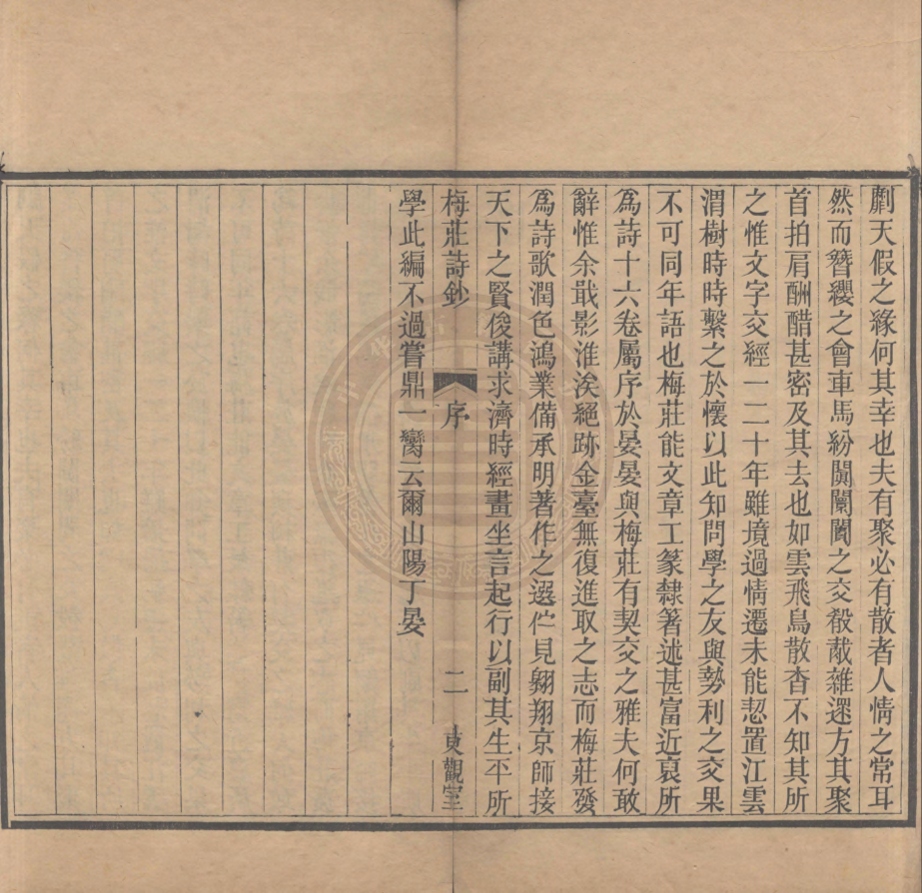 劘天假之緣何其幸也夫有聚必有散者人情之常耳
然而簪纓之會車馬紛闐闤闠之交殽胾雜遝方其聚
首拍肩酬醋甚密及其去也如雲飛鳥散杳不知其所
之惟文字交經一二十年雖境過情遷未能恝置江雲
渭樹時時繫之於懷以此知問學之友與勢利之交果
不可同年語也梅莊能文章工篆隸箸述甚富近裒所
爲詩十六卷屬序於晏晏與梅莊有契交之雅夫何敢
辭惟余戢影淮涘絕跡金臺無復進取之志而梅莊發
爲詩歌潤色鴻業備承明著作之選伫見翱翔京師接
天下之賢俊講求濟時經畫坐言起行以副其生平所
梅莊詩鈔 序 二 貞觀室
學此編不過嘗鼎一臠云爾山陽丁晏